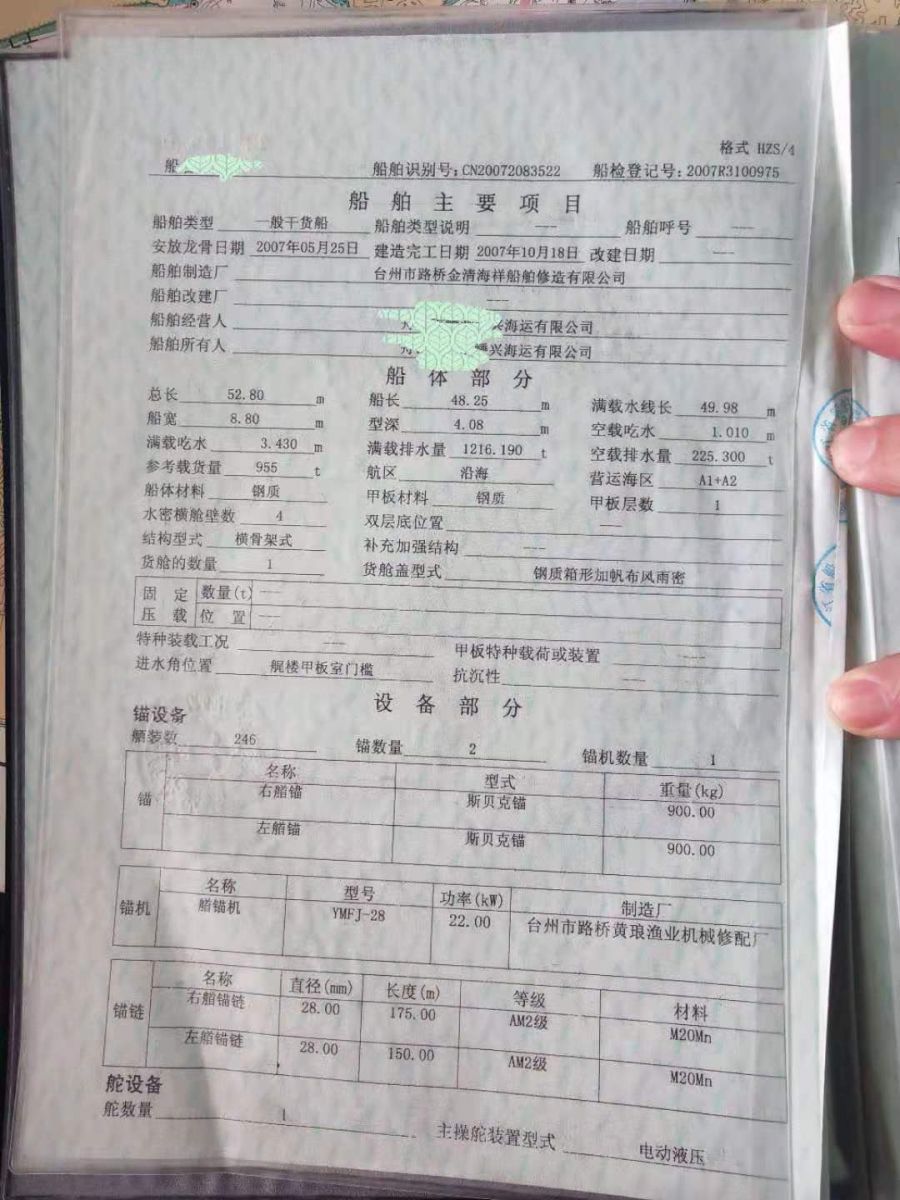 格式 HZS/4
船 船舶识别号:CN20072083522 船检登记号:2007R3100975
船舶主要项目
船舶类型 一般干货船 船舶类型说明 --- 船舶呼号 ---
安放龙骨日期 2007年05月25日 建造完工日期 2007年10月18日 改建日期 ---
船舶制造厂 台州市路桥金清海祥船舶修造有限公司
船舶改建厂 ---
船舶经营人 兴海运有限公司
船舶所有人 兴海运有限公司
船体部分
总长 52.80 m 船长 48.25 m 满载水线长 49.98 m
船宽 8.80 m 型深 4.08 m 空载吃水 1.010 m
满载吃水 3.430 m 满载排水量 1216.190 t 空载排水量 225.300 t
参考载货量 955 t 航区 沿海 营运海区 A1+A2
船体材料 钢质 甲板材料 钢质 甲板层数 1
水密横舱壁数 4 双层底位置 ---
结构型式 横骨架式 补充加强结构 ---
货舱的数量 1 货舱盖型式 钢质箱形加帆布风雨密
固定 数量(t) ---
压载 位置 ---
特种装载工况 --- 甲板特种载荷或装置 ---
进水角位置 艉楼甲板室门槛 抗沉性 ---
设备部分
锚设备
舾装数 246 锚数量 2 锚机数量 1
锚 名称 型式 重量(kg)
右艏锚 斯贝克锚 900.00
左艏锚 斯贝克锚 900.00
锚机 名称 型号 功率(kW) 制造厂
艏锚机 YMFJ-28 22.00 台州市路桥黄琅渔业机械修配厂
锚链 名称 直径(mm) 长度(m) 等级 材料
右艏锚链 28.00 175.00 AM2级 M20Mn
左艏锚链 28.00 150.00 AM2级 M20Mn
舵设备
舵数量 1 主操舵装置型式 电动液压